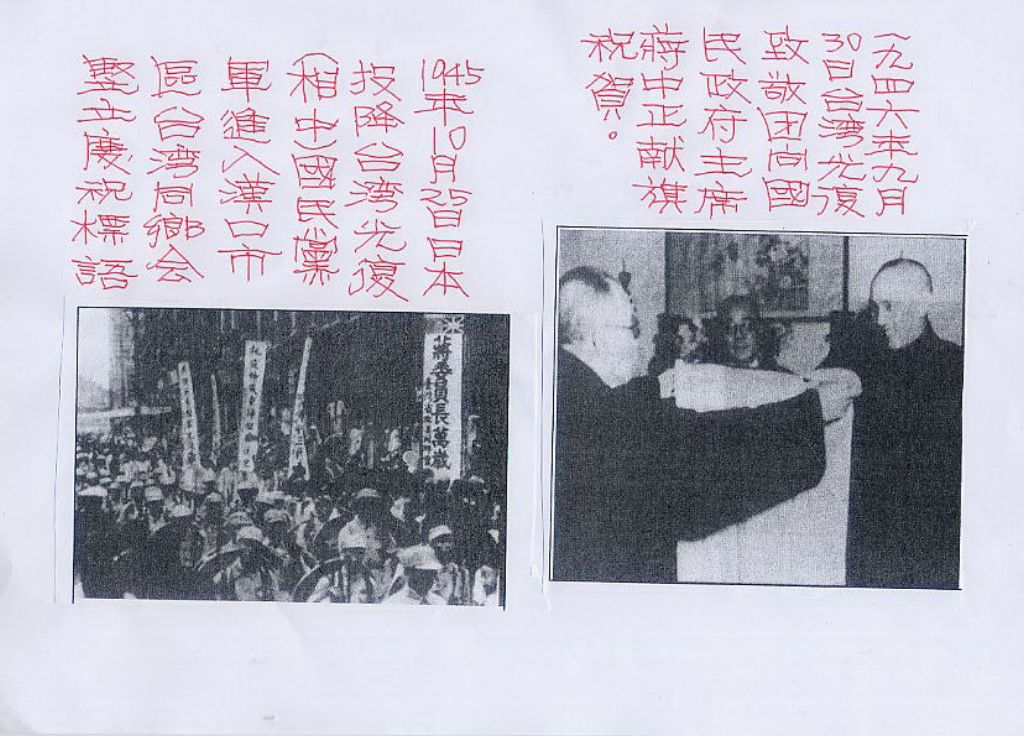 一九四六年九月
30日台湾光復
致敬团向國
民政府主席
蒋中正献旗
祝賀。
1945年10月25日日本
投降台湾光復
(相中)國民黨
軍進入漢口市
區台湾同鄉会
豎立慶祝標語
蔣委員長萬歲